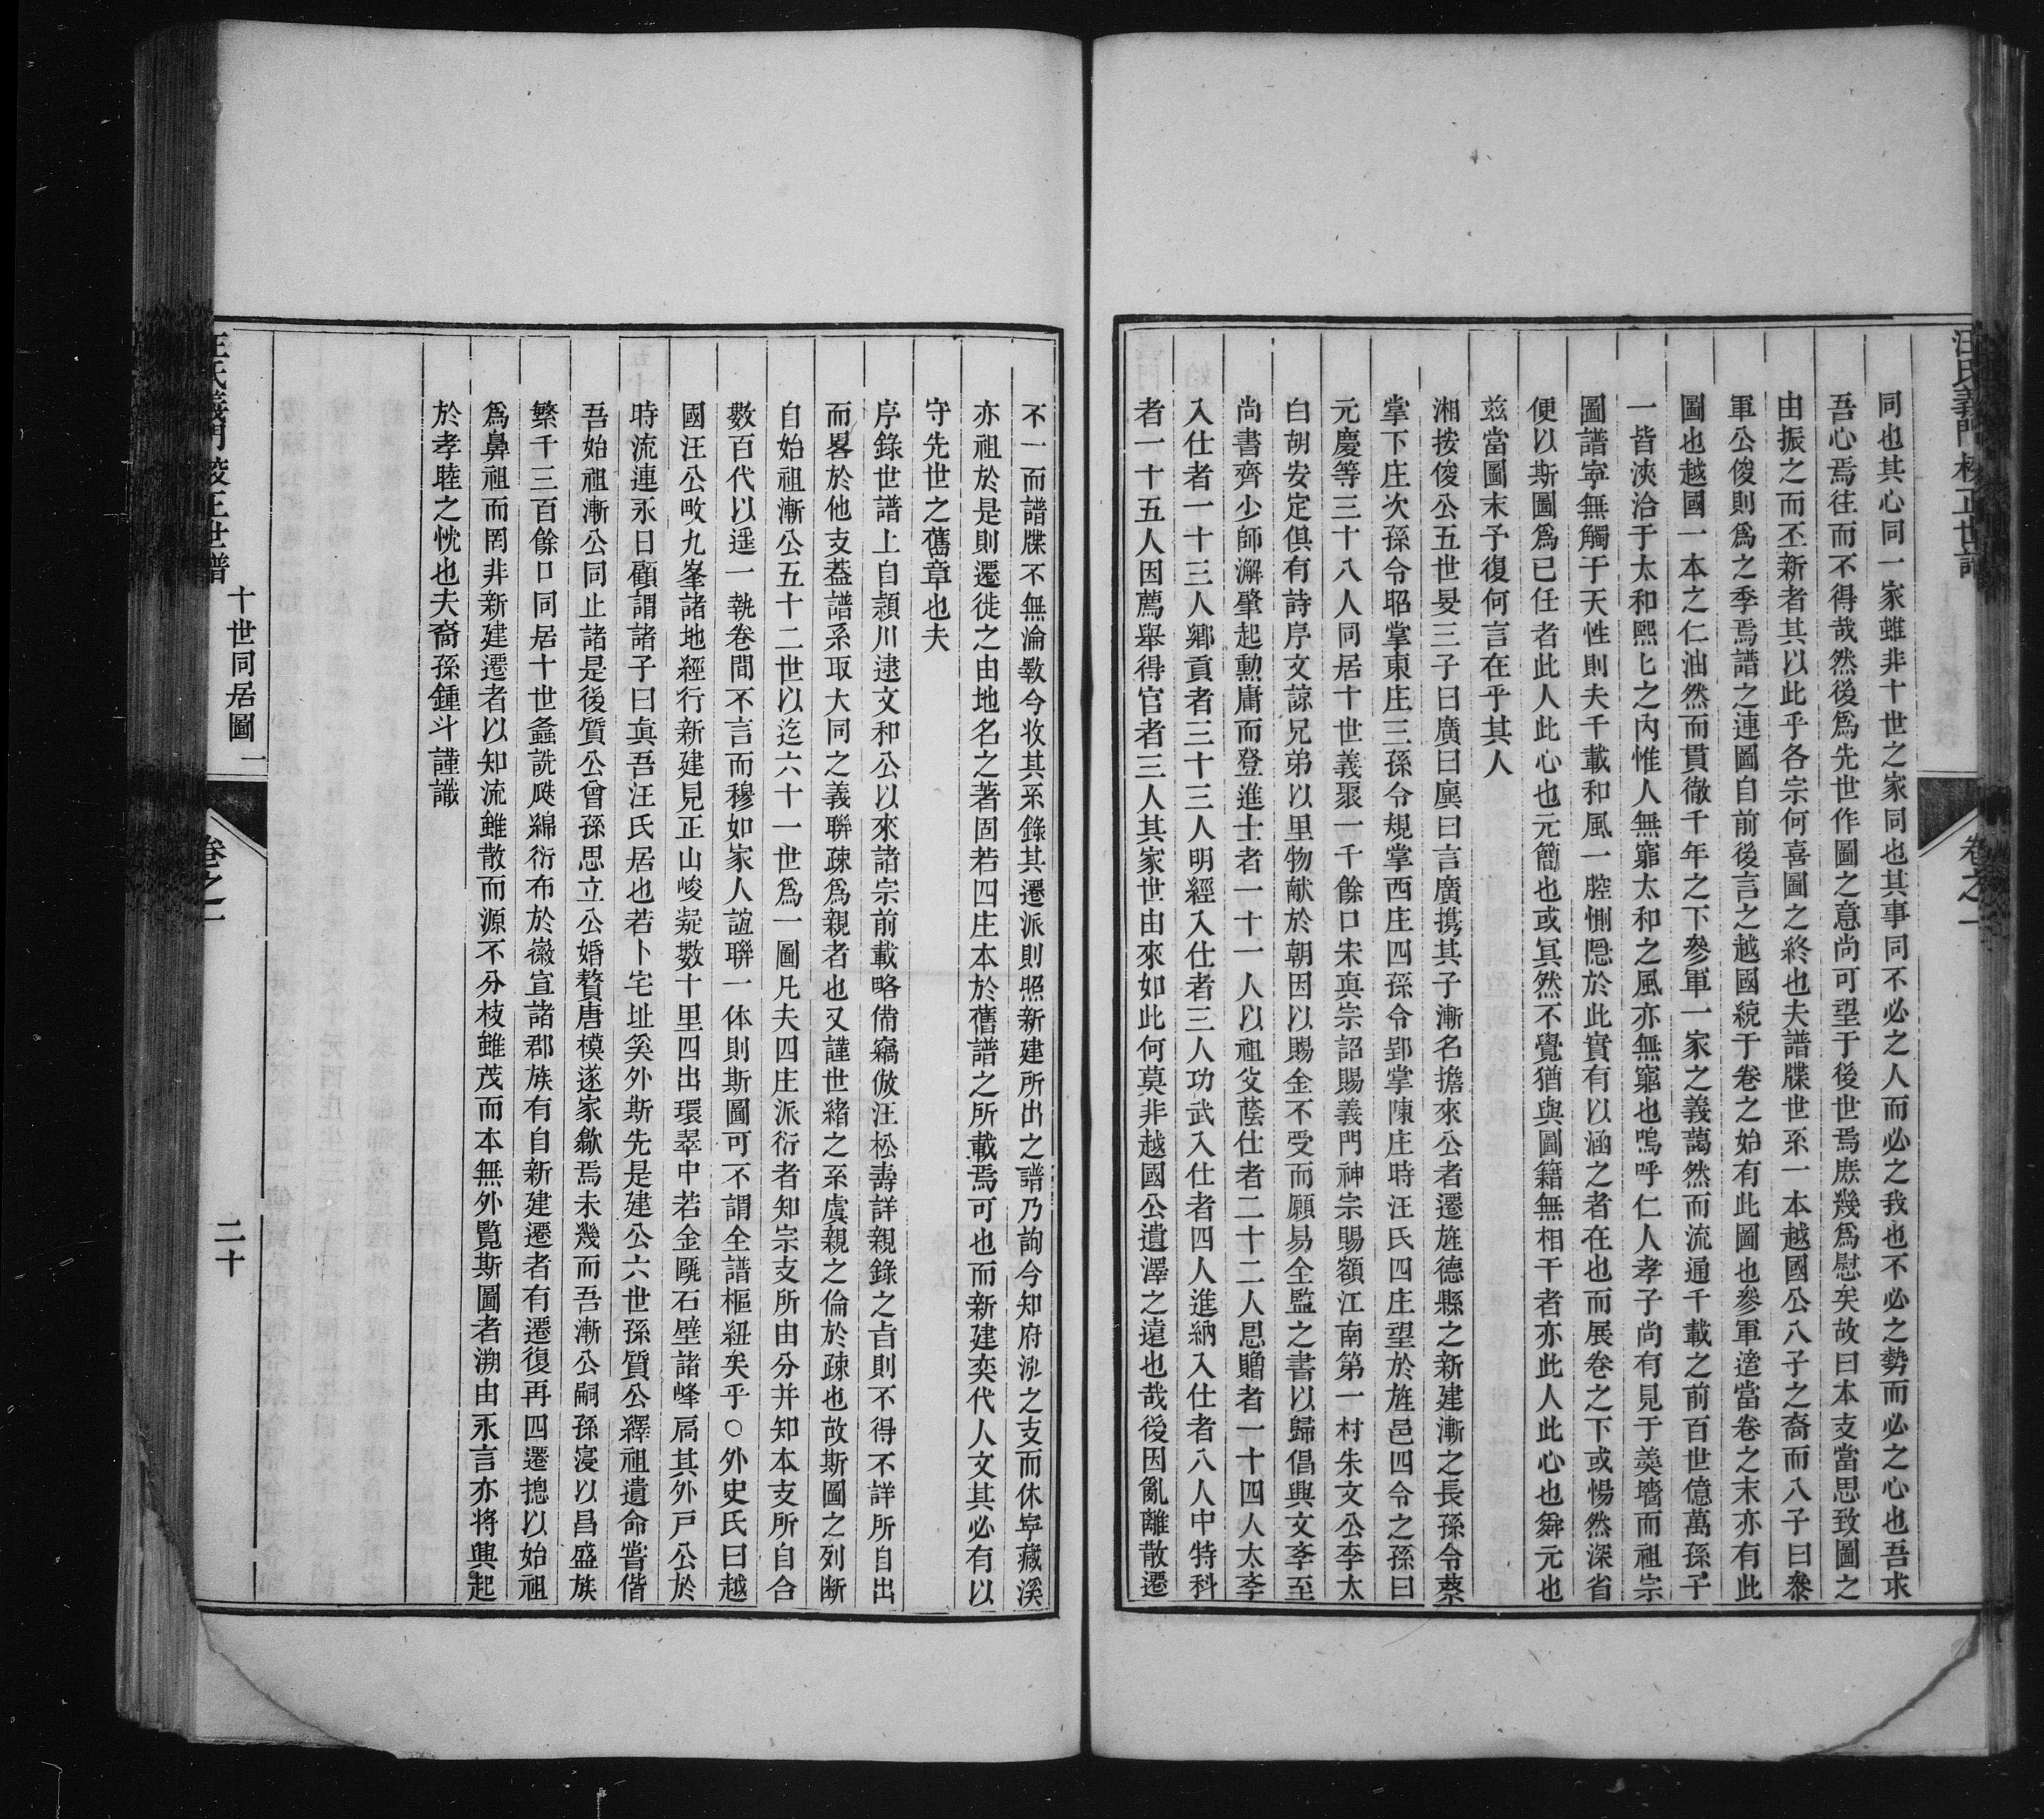 汪氏義門校正世譜
卷之一
同也其心同一家雖非十世之家同也其事同不必之人而必之我也不必之勢而必之心也吾求
吾心焉往而不得哉然後爲先世作圖之意尚可望于後世焉庶幾爲慰矣故曰本支當思致圖之
由振之而丕新者其以此乎各宗何喜圖之終也夫譜牒世系一本越國公八子之裔而八子曰叅
軍公俊則爲之季焉譜之連圖自前後言之越國統于卷之始有此圖也參軍遙當卷之末亦有此
圖也越國一本之仁油然而貫徹千年之下參軍一家之義藹然而流通千載之前百世億萬孫子
一皆浹洽于太和熙匕之內惟人無竆太和之風亦無竆也嗚呼仁人孝子尚有見于羮墻而祖宗
圖譜寜無觸于天性則夫千載和風一腔惻隱於此實有以涵之者在也而展卷之下或惕然深省
便以斯圖爲已任者此人此心也元簡也或冥然不覺猶與圖籍無相干者亦此人此心也舜元也
兹當圖末予復何言在乎其人
湘按俊公五世旻三子曰廣曰㢘曰言廣携其子漸名擔來公者遷旌德縣之新建漸之長孫令蔡
掌下庄次孫令昭掌東庄三孫令規掌西庄四孫令郢掌陳庄時汪氏四庄望於旌邑四令之孫曰
元慶等三十八人同居十世義聚一千餘口宋眞宗詔賜義門神宗賜額江南第一村朱文公李太
白胡安定俱有詩序文諒兄弟以里物献於朝因以賜金不受而願易全監之書以歸倡興文李至
尚書齊少師澥肇起勲庸而登進士者一十一人以祖父蔭仕者二十二人恩贈者一十四人太李
入仕者一十三人鄉貢者三十三人明經入仕者三人功武入仕者四人進納入仕者八人中特科
者一十五人因薦舉得官者三人其家世由來如此何莫非越國公遺澤之遠也哉後因亂離散遷
不一而譜牒不無淪斁今收其系錄其遷派則照新建所出之譜乃詢今知府泓之支而休寜藏溪
亦祖於是則遷徙之由地名之著固若四庄本於舊譜之所載焉可也而新建奕代人文其必有以
守先世之舊章也夫
序錄世譜上自潁川逮文和公以來諸宗前載略備竊倣汪松壽詳親錄之㫖則不得不詳所自出
而畧於他支葢譜系取大同之義聯疎爲親者也又謹世緒之系虞親之倫於疎也故斯圖之列斷
自始祖漸公五十二世以迄六十一世爲一圖凡夫四庄派衍者知宗支所由分并知本支所自合
數百代以遥一執卷間不言而穆如家人誼聯一体則斯圖可不謂全譜樞紐矣乎○外史氏曰越
國汪公畋九峯諸地經行新建見正山峻凝數十里四出環翠中若金甌石壁諸峰扃其外戸公於
時流連永日顧謂諸子曰眞吾汪氏居也若卜宅址奚外斯先是建公六世孫質公繹祖遺命嘗偕
吾始祖漸公同止諸是後質公曾孫思立公婚贅唐模遂家歙焉未幾而吾漸公嗣孫寖以昌盛族
繁千三百餘口同居十世螽詵瓞綿衍布於徽宣諸郡族有自新建遷者有遷復再四遷摠以始祖
爲鼻祖而罔非新建遷者以知流雖散而源不分枝雖茂而本無外覧斯圖者溯由永言亦将興起
於孝睦之忱也夫裔孫鍾斗謹識
汪氏義門校正世譜
十世同居圖一
卷之一
二十